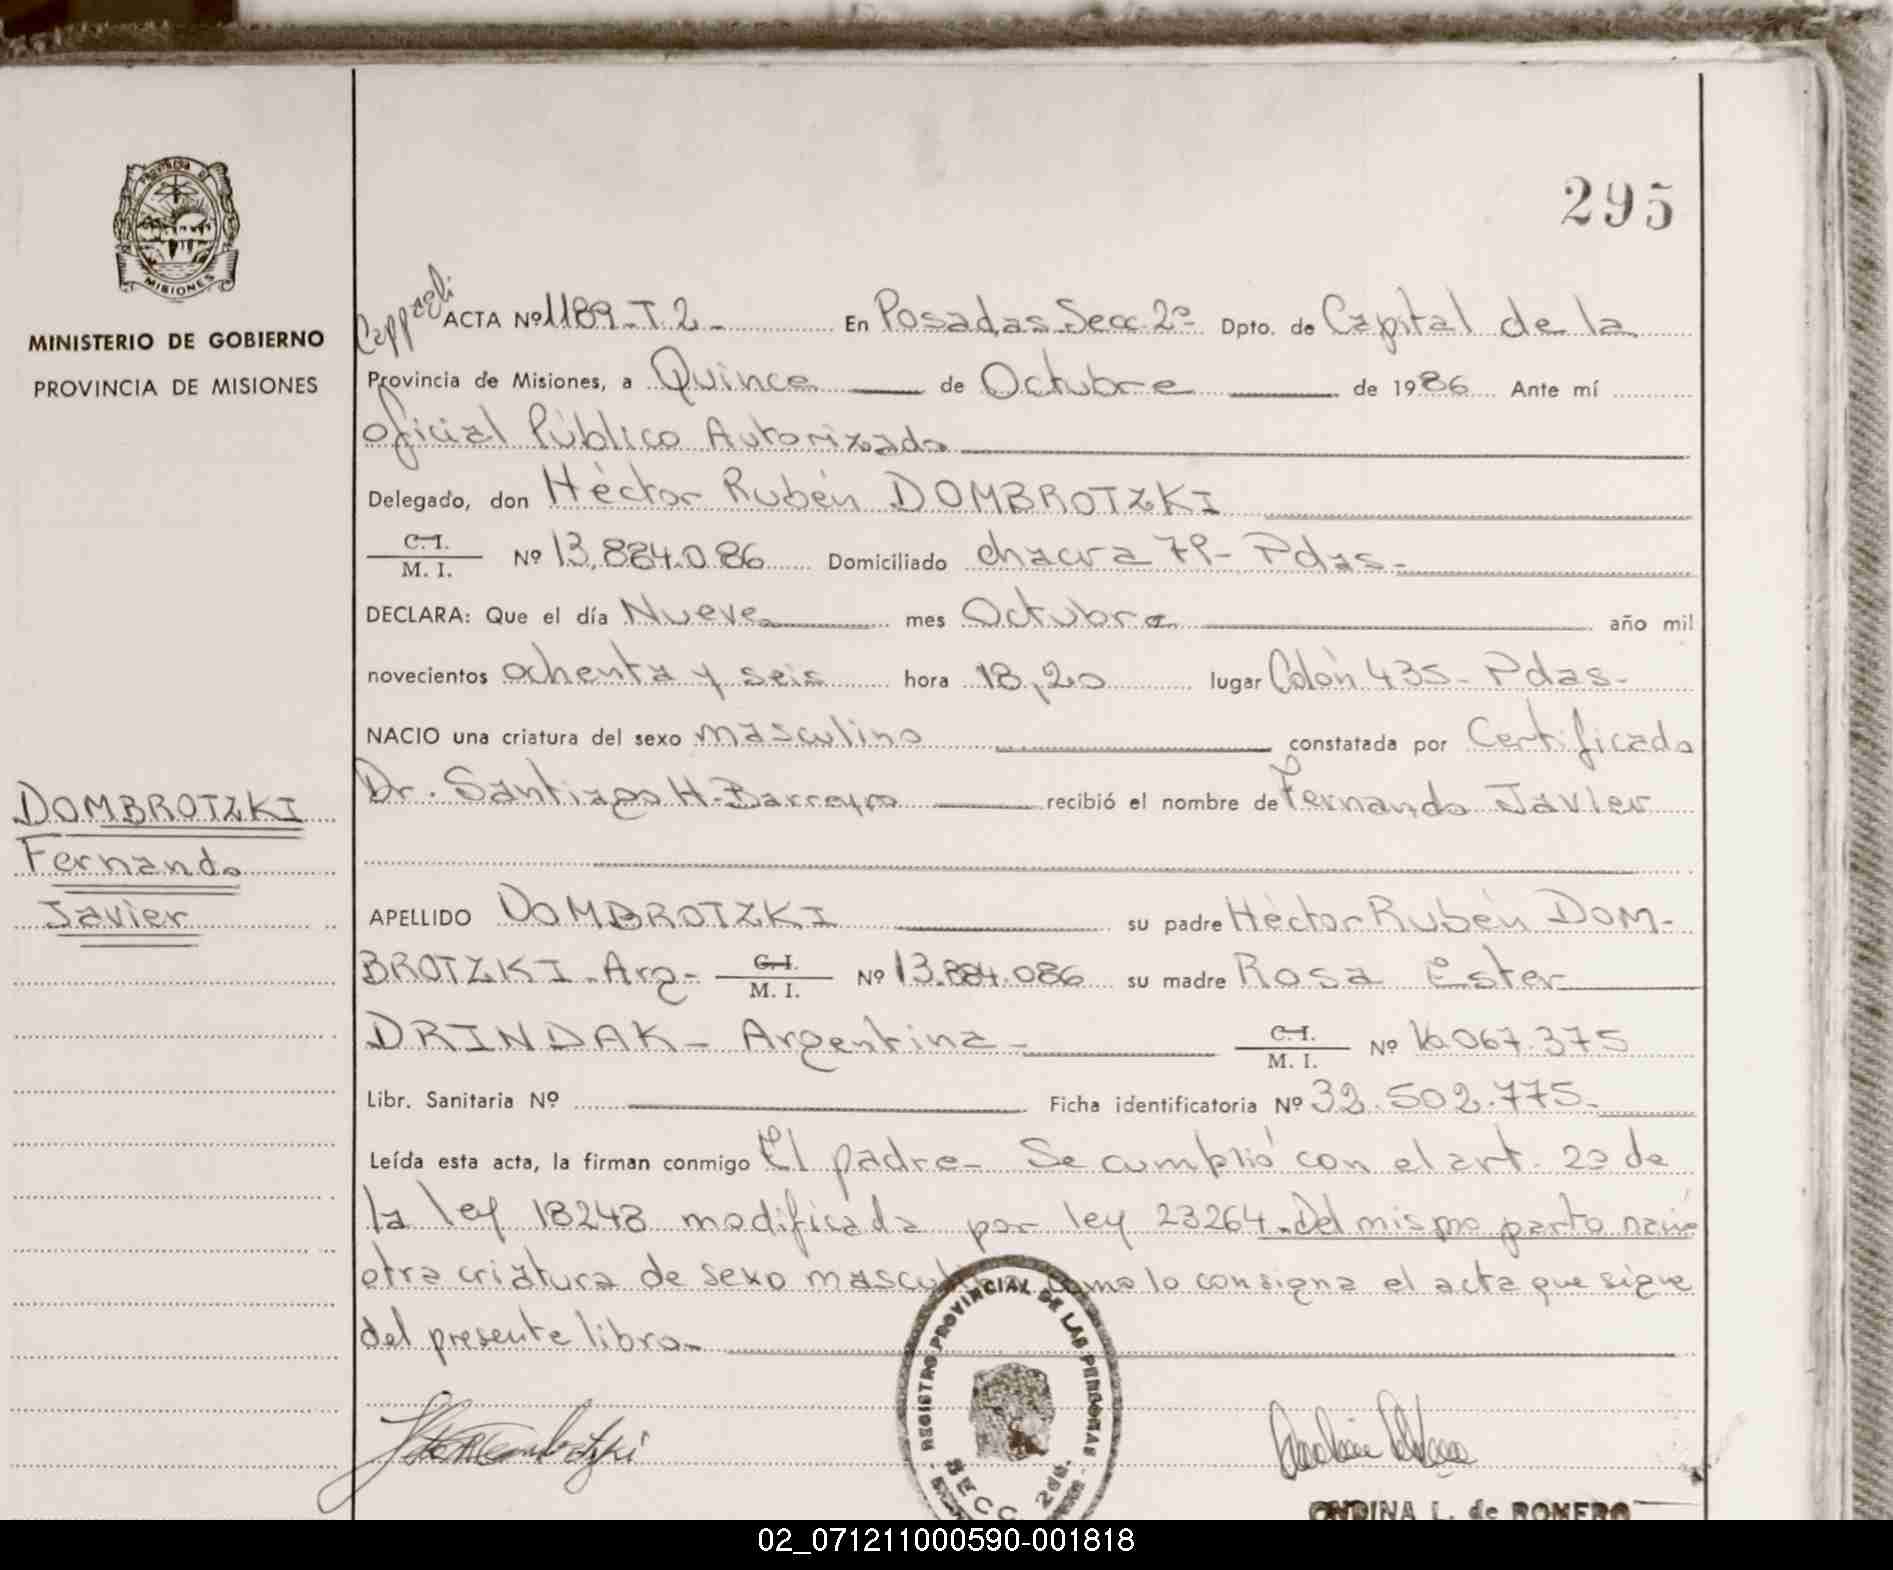 295
PROVINCIA DE
MISIONES
MINISTERIO DE GOBIERNO
PROVINCIA DE MISIONES
DOMBROTZKI
Fernando
Javier
ACTA Nº 1189-T.2- En Posadas Secc 2º Dpto. de Capital de la
Provincia de Misiones, a Quince de Octubre de 1986 Ante mí
Oficial Público Autorizado
Delegado, don Héctor Rubén DOMBROTZKI
C.I.
M. I. Nº 13.884.086 Domiciliado chacra 79- Pdas-
DECLARA: Que el día Nueve mes Octubre año mil
novecientos ochenta y seis hora 18,20 lugar Colón 435- Pdas-
NACIO una criatura del sexo masculino constatada por Certificado
Dr. Santiago H. Barreyro recibió el nombre de Fernando Javier
APELLIDO DOMBROTZKI su padre Héctor Rubén DOM-
BROTZKI-Arg- C.I.
M. I. Nº 13.884.086 su madre Rosa Ester
DRINDAK- Argentina- C.I.
M. I. Nº 16.067.375
Libr. Sanitaria Nº Ficha identificatoria Nº 32.502.775-
Leída esta acta, la firman conmigo El padre- Se cumplió con el art. 20 de
la ley 18248 modificada por ley 23264.-Del mismo parto nació
otra criatura de sexo masculino como lo consigna el acta que sigue
del presente libro-
REGISTRO PROVINCIAL DE LAS PERSONAS
SECC. 2da.
ONDINA L. de ROMERO
02_071211000590-001818